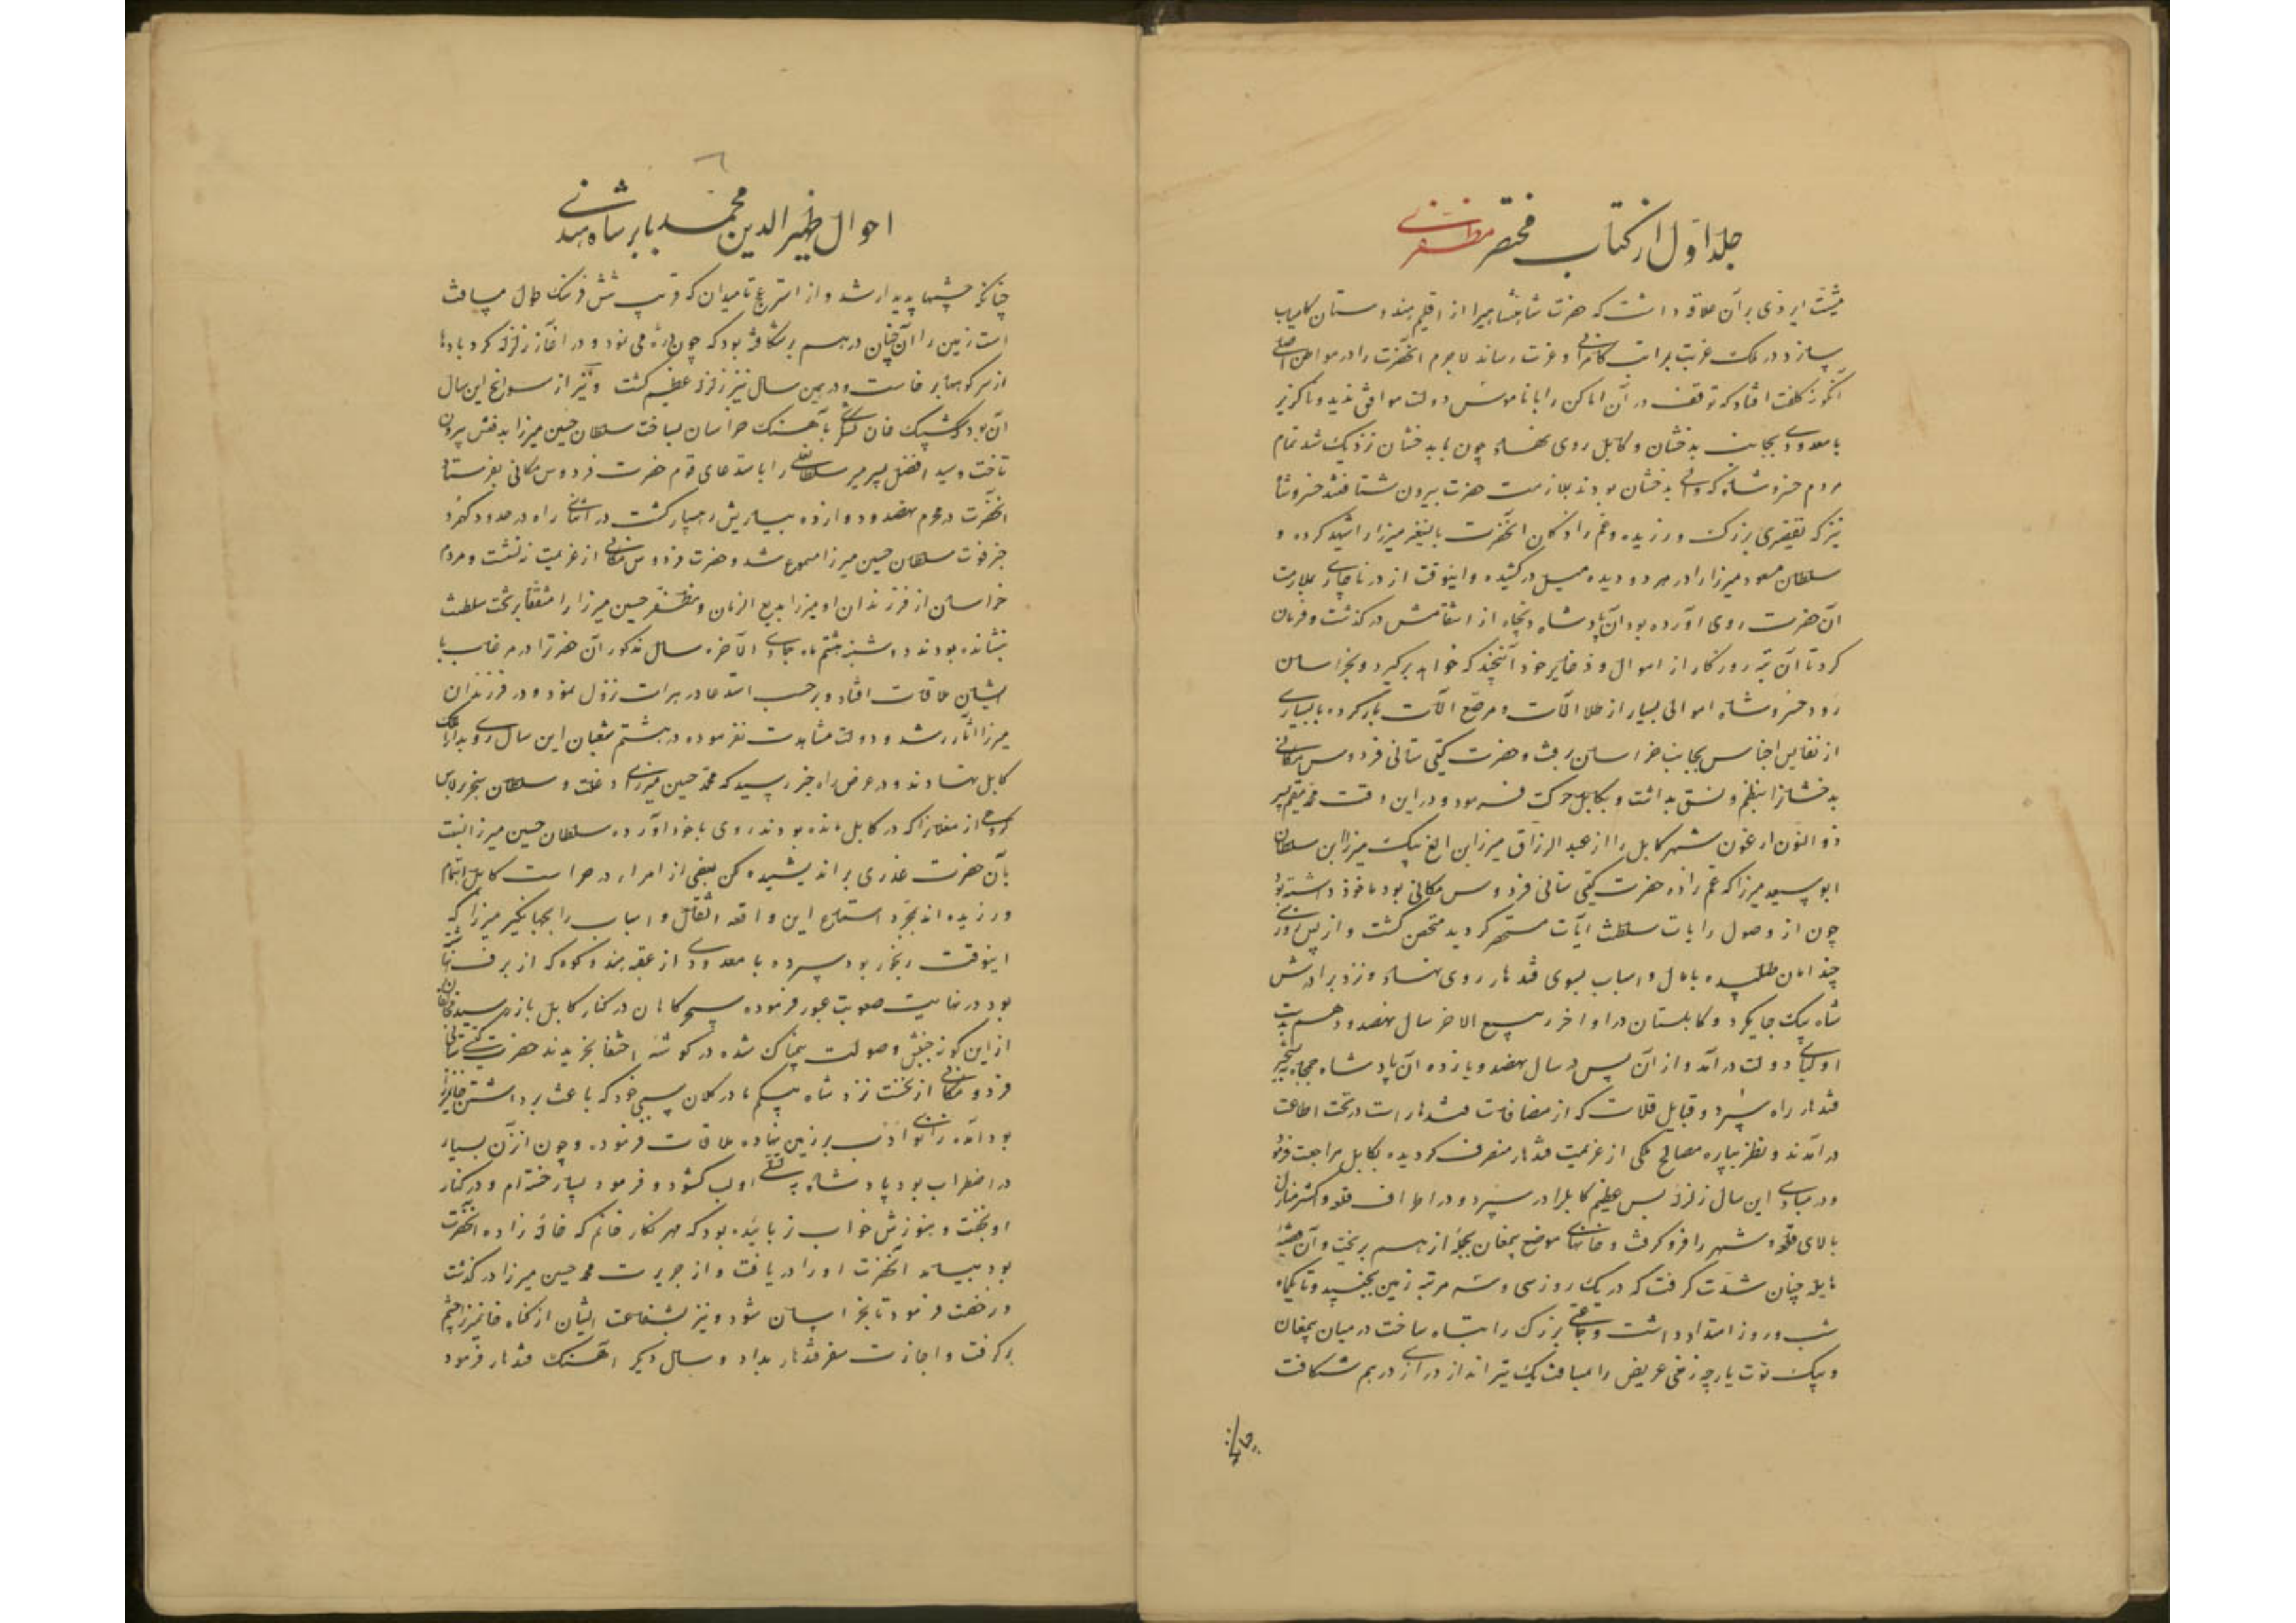 جلد اوّل از کتاب مختصر مظفری
مشیّت ایزدی بر آن علاقه داشت که حضرت شاهنشاهیرا از اقلیم هندوستان کامیاب
سازد و در ملک غربت بمراتب کامرانی و عزت رساند لاجرم آنحضرت را در مواطن اصلی
آنگونه کلفت افتاد که توقف در آن اماکن را با ناموس دولت موافق ندید و ناگزیر
با معدودی بجانب بدخشان و کابل روی نهاد چون با بدخشان نزدیک شد تمام
مردم خسروشاه که والی بدخشان بودند بملازمت حضرت بیرون شتافتند خسروشاه
نیز که تقصیری بزرگ ورزیده و عم زادگان آنحضرت بایسنغر میرزا را شهید کرده و
سلطان مسعود میرزا را در هر دو دیده میل درکشیده و اینوقت از در ناچاری بملازمت
آن حضرت روی آورده بود آن پادشاه دیجاه از انتقامش درگذشت و فرمان
کرد تا آن تبه روزگار از اموال و ذخایر خود آنچند که خواهد برگیرد و بخراسان
رود خسروشاه اموالی بسیار از طلا آلات و مرصّع آلات بار کرده با بسیاری
از نفایس اجناس بجانب خراسان برفت و حضرت گیتی ستانی فردوس مکانی
بدخشانرا بنظم و نسق بداشت و بکابل حرکت فرمود و در این وقت محمد مقیم پسر
ذو النون ارغون شهر کابل را از عبد الرزاق میرزا ابن الغ بیک میرزا ابن سلطان
ابوسعید میرزا که عم زاده حضرت گیتی ستانی فردوس مکانی بود ماخوذ داشته بود
چون از وصول رایات سلطنت آیات مستحضر گردید متحصن گشت و از پس روزی
چند امان طلبیده با مال و اسباب بسوی قندهار روی نهاد و نزد برادرش
شاه بیک جای کرد و کابلستان در اواخر ربیع الاخر سال نهصد و دهم بدست
اولیای دولت درآمد و از آن پس در سال نهصد و یازده آن پادشاه جمجاه به تسخیر
قندهار راه سپرد و قبایل قلات که از مضافات قندهار است در تحت اطاعت
درآمدند و نظر بپاره مصالح ملکی از عزیمت قندهار منصرف گردیده بکابل مراجعت فرمود
و در مبادی این سال زلزله بس عظیم کابل را در سپرد و در اطراف قلعه و اکثر منازل
بالای قلعه و شهر را فرو گرفت و خانهای موضع پمغان بجمله از هم بریخت و آن قضیه
هایله چنان شدّت گرفت که در یک روز سی و سه مرتبه زمین بجنبید و تا یکماه
شب و روز امتداد داشت و جمعی بزرگ را تباه ساخت در میان پمغان
و بیک توت پارچه زمینی عریض را بمسافت یک تیر انداز درازی در هم شکافت
چنانکه
۶
احوال ظهیر الدین محمد بابر شاه هندی
چنانکه چشمها پدیدار شد و از استرغج تا میدان که قریب شش فرسنگ طول مسافت
است زمین را آن چنان در هم بر شکافته بود که چون درّه می نمود و در آغاز زلزله گرد بادها
از سر کوهها بر خاست و در همین سال نیز زلزله عظیم گشت و نیز از سوانح این سال
آن بود که شیبک خان لشکری بآهنگ خراسان بساخت سلطان حسین میرزا بدفعش بیرون
تاخت و سید افضل پسر میر سلطانعلی را باستدعای قدوم حضرت فردوس مکانی بفرستاد
آنحضرت در محرم نهصد و دوازده بیاریش رهسپار گشت در اثنای راه در حدود کهمرد
خبر فوت سلطان حسین میرزا مسموع شد و حضرت فردوس مکانی از عزیمت ننشست و مردم
خراسان از فرزندان او میرزا بدیع الزمان و مظفّر حسین میرزا را متفقاً بر تخت سلطنت
بنشانده بودند دوشنبه هشتم ماه جمادی الآخره سال مذکور آن حضرترا در مرغاب با
ایشان ملاقات افتاد و بر حسب استدعا در هرات نزول نمود و در فرزندان
میرزا آثار رشد و دولت مشاهدت نفرموده در هشتم شعبان این سال روی بدار الملک
کابل نهادند و در عرض راه خبر رسید که محمّد حسین میرزای دغلت و سلطان سنجر برلاس
گروهی از مغلانرا که در کابل مانده بودند روی با خود آورده سلطان حسین میرزا نسبت
بآن حضرت غدری بر اندیشیده لکن بعضی از امراء در حراست کابل اهتمام
ورزیده اند بمجرّد استماع این واقعه اثقال و اسباب را بجهانگیر میرزا که
اینوقت رنجور بود سپرده با معدودی از عقبه هندوکوه که از برف
بود در نهایت صعوبت عبور فرموده سحرگاهان در کنار کابل باز رسید
از این گونه جنبش و صولت بیمناک شده در گوشه اختفا بخزیدند حضرت گیتی ستانی
فردوس مکانی از نخست نزد شاه بیگم مادر کلان سببی خود که باعث برداشتن خانمیرزا
بود آمده زانوی ادب بر زمین نهاده ملاقات فرموده و چون آنزن بسیار
در اضطراب بود پادشاه به تسلی او لب گشود و فرمود بسیار خسته ام و در کنار
او بخفت و هنوزش خواب نربائیده بود که مهر نگار خانم که خاله زاده آنحضرت
بود بیامد آنحضرت او را دریافت و از جریرت محمد حسین میرزا درگذشت
و رخصت فرمود تا بخراسان شود و نیز بشفاعت ایشان از گناه خانمیرزا چشم
برگرفت و اجازت سفر قندهار بداد و سال دیگر آهنگ قندهار فرمود